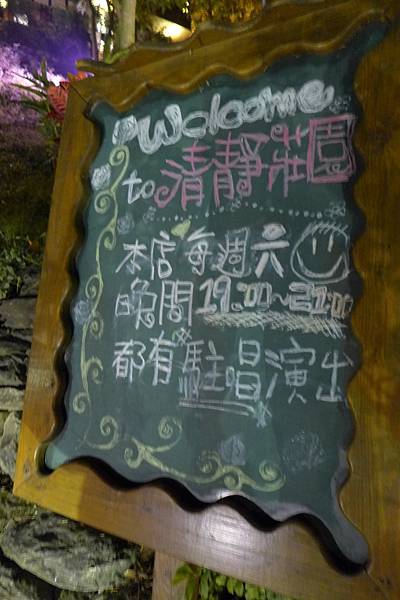 Welcome
to 清靜莊園
本店每週六
晚間19:00~21:00
都有駐唱演出